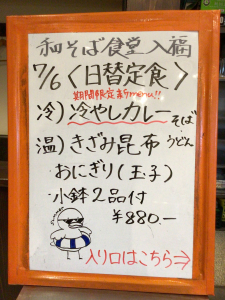 和そば食堂入福
7/6〈日替定食〉
期間限定新menu!!
冷)冷やしカレーそば
温)きざみ昆布うどん
おにぎり(玉子)
小鉢2品付
¥880.-
入り口はこちら→